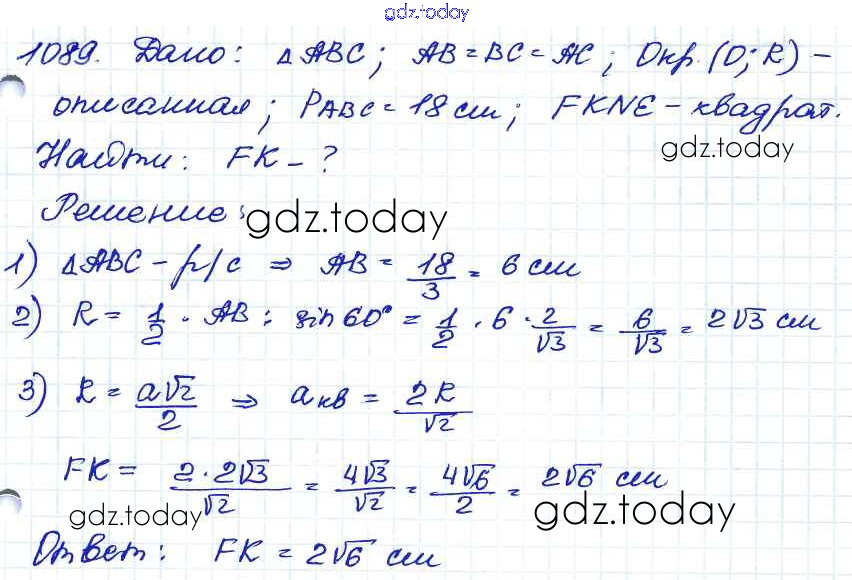 gdz.today
1089. Дано: △ABC; AB = BC = AC; Окр. (O; R) –
описанная; P ABC = 18 см; FKNE – квадрат.
Найти: FK – ? gdz.today
Решение: gdz.today
1) △ABC – р/с ⇒ AB = 18/3 = 6 см
2) R = 1/2 · AB : sin 60° = 1/2 · 6 · 2/√3 = 6/√3 = 2√3 см
3) R = a√2/2 ⇒ a кв = 2R/√2
FK = 2·2√3/√2 = 4√3/√2 = 4√6/2 = 2√6 см
gdz.today gdz.today
Ответ: FK = 2√6 см